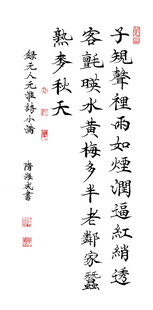 子規聲裡雨如煙潤逼紅綃透
客氈暎水黃梅多半老鄰家蠶
熟麥秋天
錄元人元淮詩小滿
隋海武書